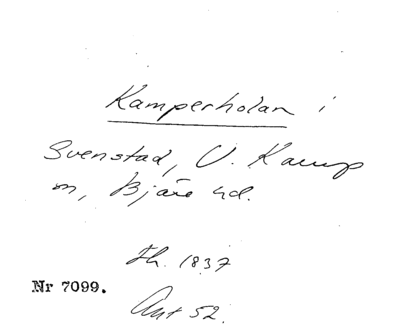 Kamperholan i
Svenstad, V. Karup
sn, Bjäre hd.
Fh. 1837
Nr 7099.
Ant 52.